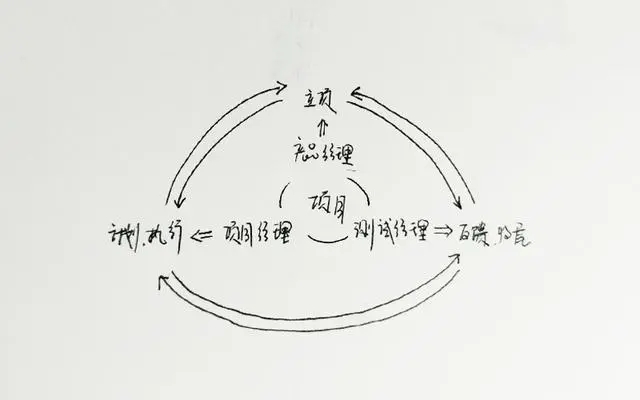 立项
产品经理
项目
计划.执行 项目经理 测试经理